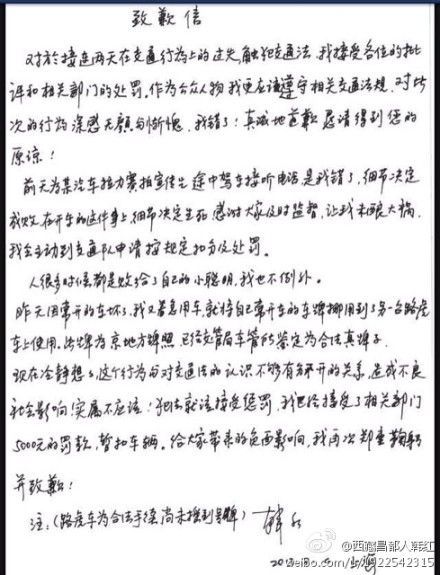 致歉信
对於接连两天在交通行为上的过失,触犯交通法,我接受各位的批
评和相关部门的处罚。作为公众人物我更应该遵守相关交通法规,对此
次的行为深感无颜与惭愧,我错了!真诚地道歉恳请得到您的
原谅!
前天为某汽车拉力赛拍宣传片途中驾车接听电话是我错了,细节决定
成败在开车的这件事上,细节决定生死感谢大家及时监督,让我未酿大祸,
我会主动到交通队申请按规定扣分及处罚。
人很多时候都是败给了自己的小聪明,我也不例外。
昨天因常开的车坏了,我又着急用车,就将自己常开车的车牌挪用到了另一台路虎
车上使用。此牌为京地方牌照,已经交管局车管所鉴定为合法真牌子.
现在冷静想了,这个行为与对交通法的认识不够有分不开的关系,造成不良
社会影响,实属不应该!犯法就该接受惩罚,我已经接受了相关部门
5000元的罚款,暂扣车辆。给大家带来的负面影响,我再次郑重鞠躬
并致歉!
注:(路虎车为合法手续尚未拿到号牌) 韩红
@西藏昌都人韩红
weibo.com/1922542315